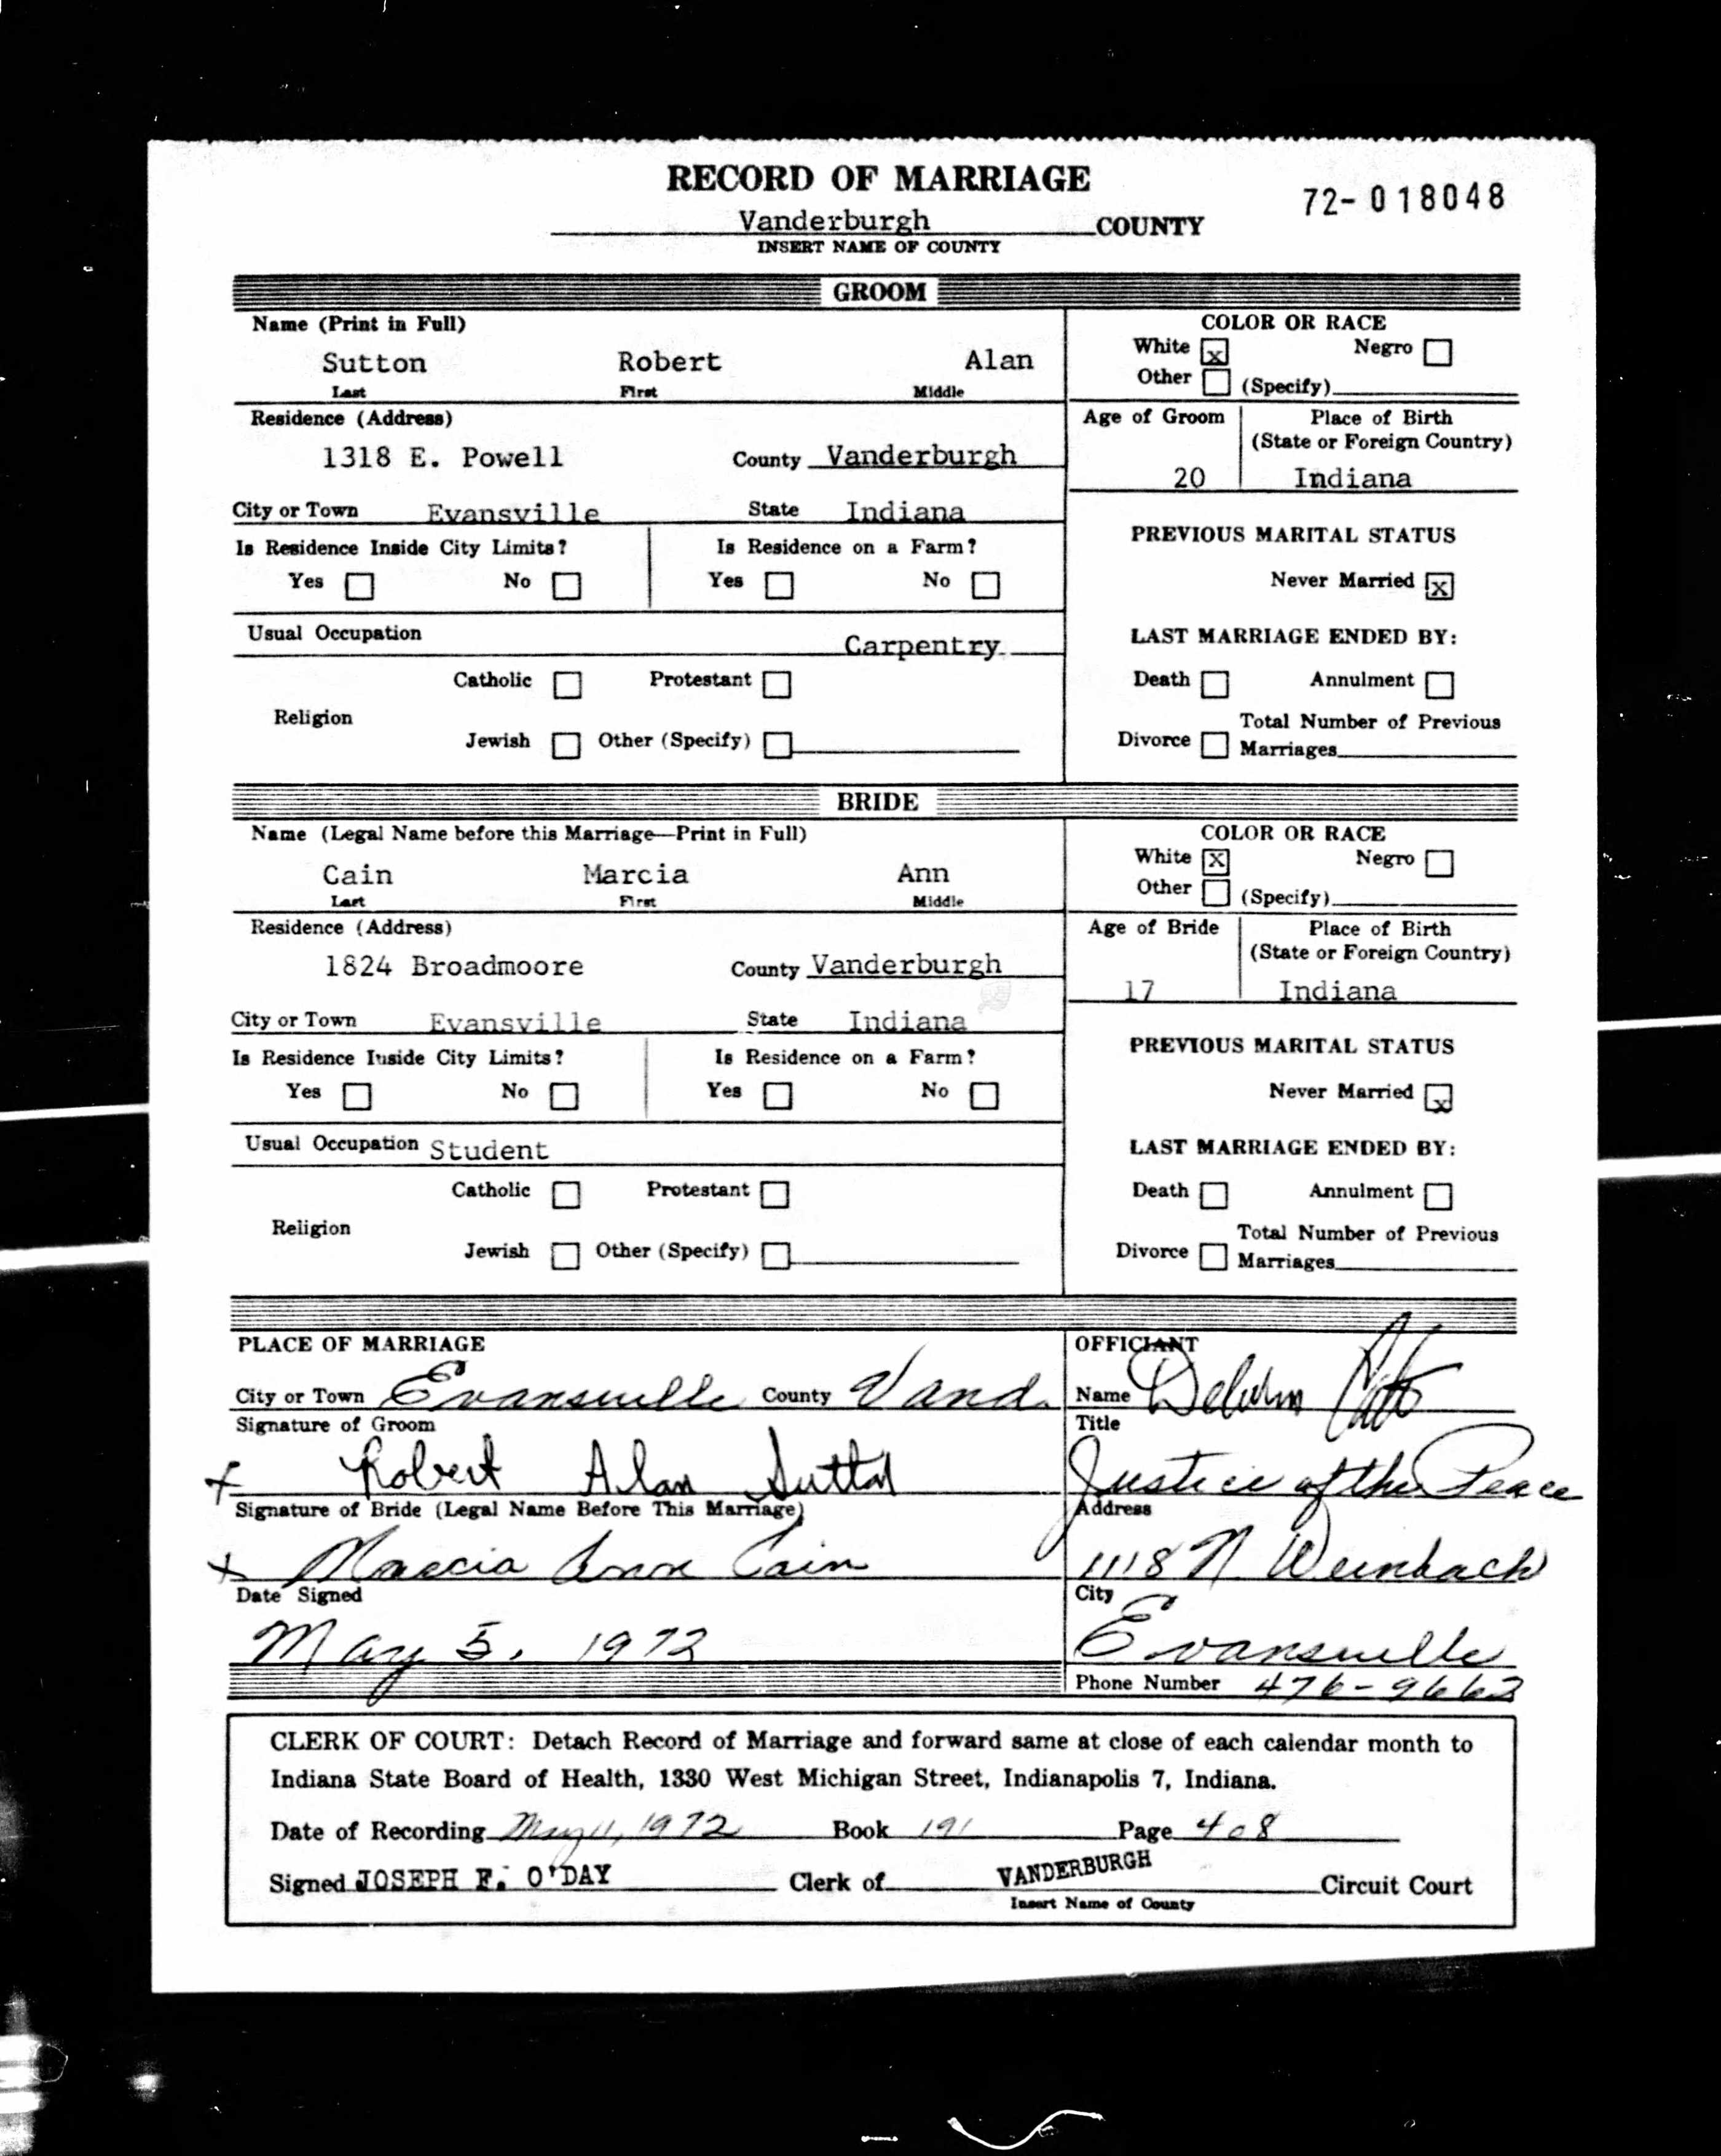 RECORD OF MARRIAGE
72-018048
Vanderburgh COUNTY
INSERT NAME OF COUNTY
GROOM
Name (Print in Full)
Sutton Robert Alan
Last First Middle
COLOR OR RACE
White x Negro
Other (Specify)
Residence (Address)
1318 E. Powell County Vanderburgh
City or Town Evansville State Indiana
Age of Groom Place of Birth
(State or Foreign Country)
20 Indiana
Is Residence Inside City Limits? Is Residence on a Farm?
Yes No Yes No
PREVIOUS MARITAL STATUS
Never Married x
Usual Occupation Carpentry
LAST MARRIAGE ENDED BY:
Catholic Protestant
Religion
Jewish Other (Specify)
Death Annulment
Total Number of Previous
Divorce Marriages
BRIDE
Name (Legal Name before this Marriage—Print in Full)
Cain Marcia Ann
Last First Middle
COLOR OR RACE
White X Negro
Other (Specify)
Residence (Address)
1824 Broadmoore County Vanderburgh
City or Town Evansville State Indiana
Age of Bride Place of Birth
(State or Foreign Country)
17 Indiana
Is Residence Inside City Limits? Is Residence on a Farm?
Yes No Yes No
PREVIOUS MARITAL STATUS
Never Married x
Usual Occupation Student
LAST MARRIAGE ENDED BY:
Catholic Protestant
Religion
Jewish Other (Specify)
Death Annulment
Total Number of Previous
Divorce Marriages
PLACE OF MARRIAGE
City or Town Evansville County Vand.
Signature of Groom
x Robert Alan Sutton
Signature of Bride (Legal Name Before This Marriage)
x Marcia Ann Cain
Date Signed
May 5, 1972
OFFICIANT
Name
Title
Justice of the Peace
Address
1118 N. Weinbach
City
Evansville
Phone Number 476-9662
CLERK OF COURT: Detach Record of Marriage and forward same at close of each calendar month to
Indiana State Board of Health, 1330 West Michigan Street, Indianapolis 7, Indiana.
Date of Recording May 11, 1972 Book 191 Page 408
Signed JOSEPH F. O'DAY Clerk of VANDERBURGH Circuit Court
Insert Name of County